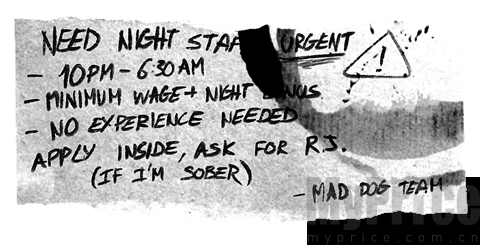 NEED NIGHT STAFF URGENT
!
- 10PM - 6:30AM
- MINIMUM WAGE + NIGHT BONUS
- NO EXPERIENCE NEEDED
APPLY INSIDE, ASK FOR R.J.
(IF I'M SOBER)
- MAD DOG TEAM
MyPrice
myprice.com.cn